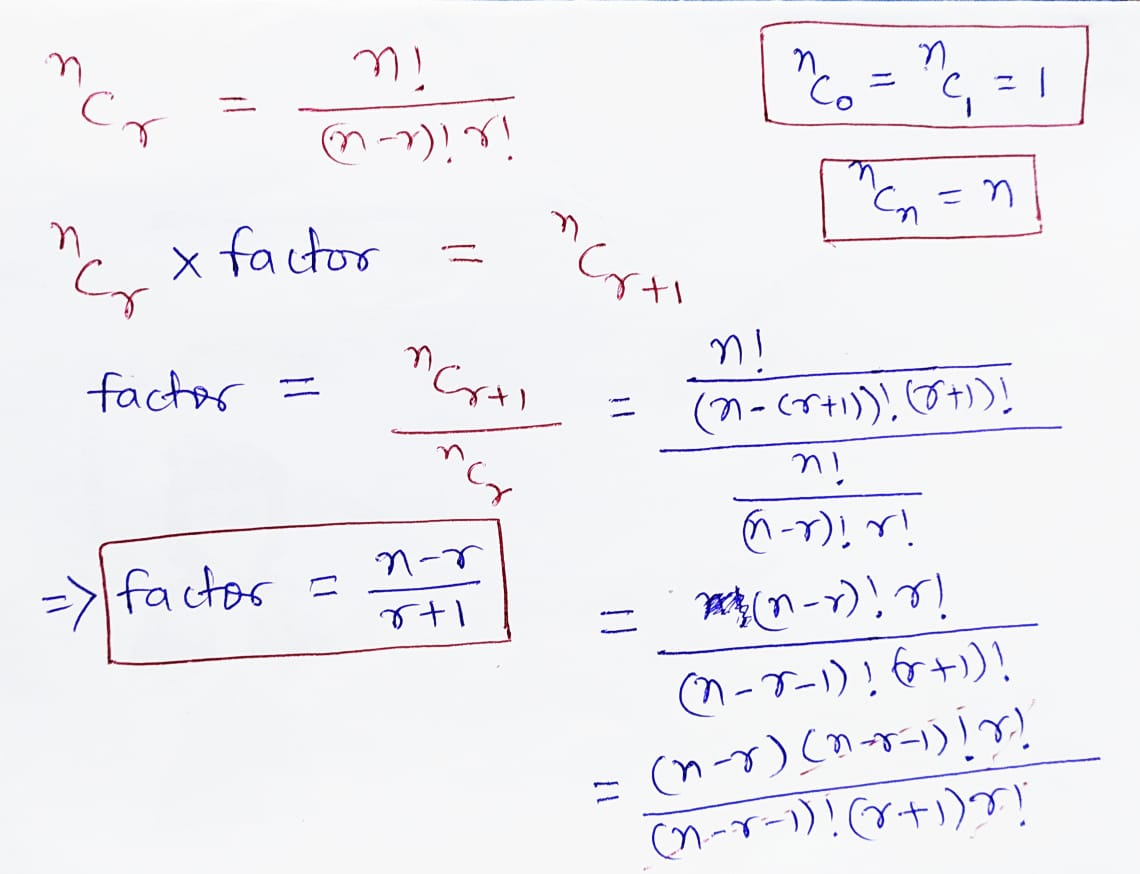 ⁿCᵣ = n! / (n-r)! r!
ⁿC₀ = ⁿC₁ = 1
ⁿCₙ = n
ⁿCᵣ × factor = ⁿCᵣ₊₁
factor = ⁿCᵣ₊₁ / ⁿCᵣ = (n! / (n-(r+1))! (r+1)!) / (n! / (n-r)! r!)
= (n-r)! r! / (n-r-1)! (r+1)!
= (n-r) (n-r-1)! r! / (n-r-1)! (r+1) r!
=> factor = n-r / r+1